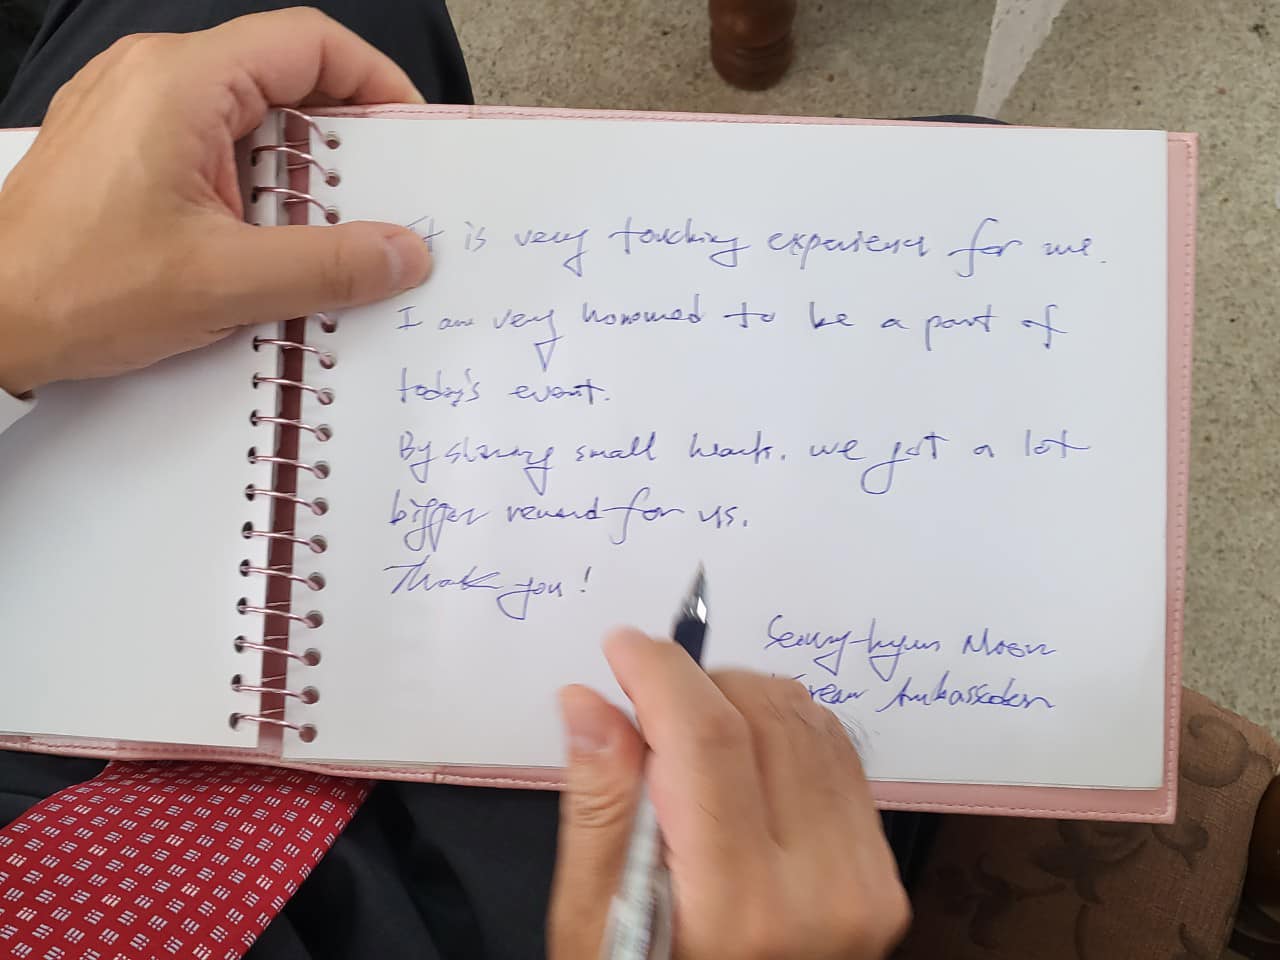 It is very touching experience for me.
I am very honored to be a part of
today's event.
By sharing small hearts, we got a lot
bigger reward for us.
Thank you!
Seoung-hyun Moon
Korean Ambassador